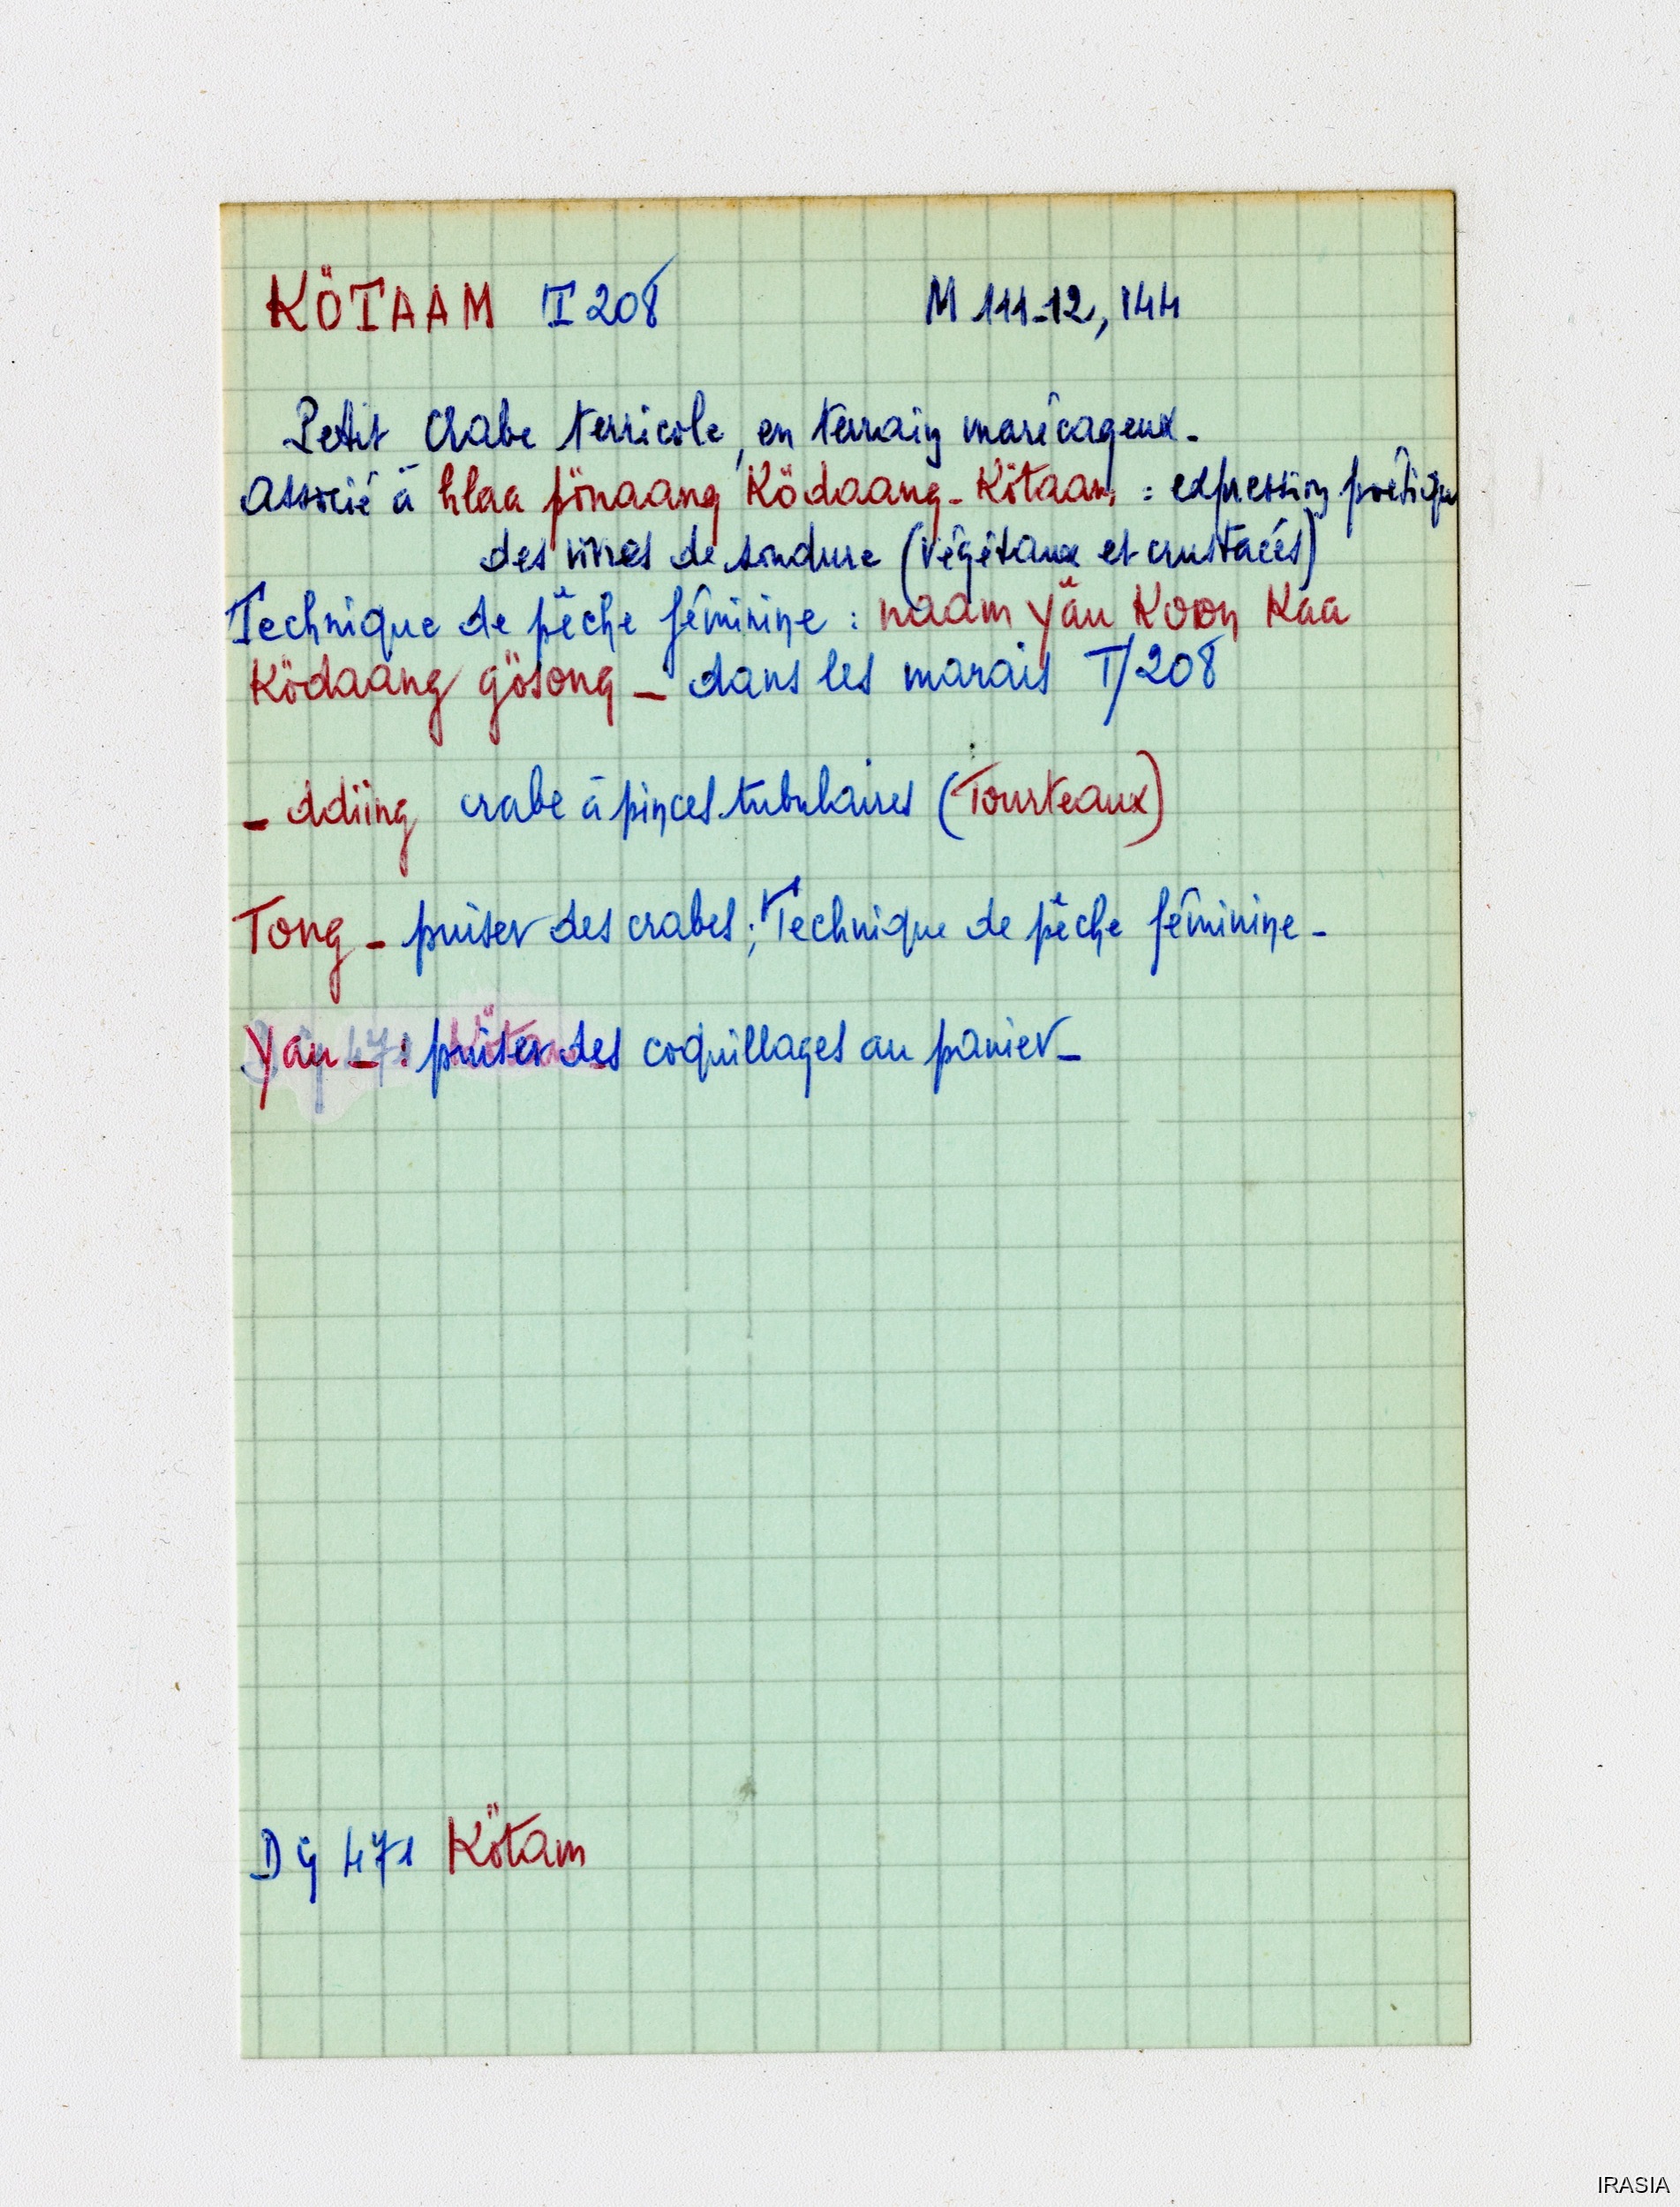 KÖTAAM T 208 M 111-12, 144
Petit Crabe terricole, en terrain marécageux -
Associé à hlaa pönaang Ködaang - Kötaam : expression poétique
des vivres de soudure (végétaux et crustacés)
Technique de pêche féminine : naam yău Koon Kaa
Ködaang gösong - dans les marais T/208
- ddiing crabe à pinces tubulaires (Tourteaux)
Tong - puiser des crabes ; Technique de pêche féminine -
Yau - : puiser des coquillages au panier -
Dg 471 Kötam
IRASIA